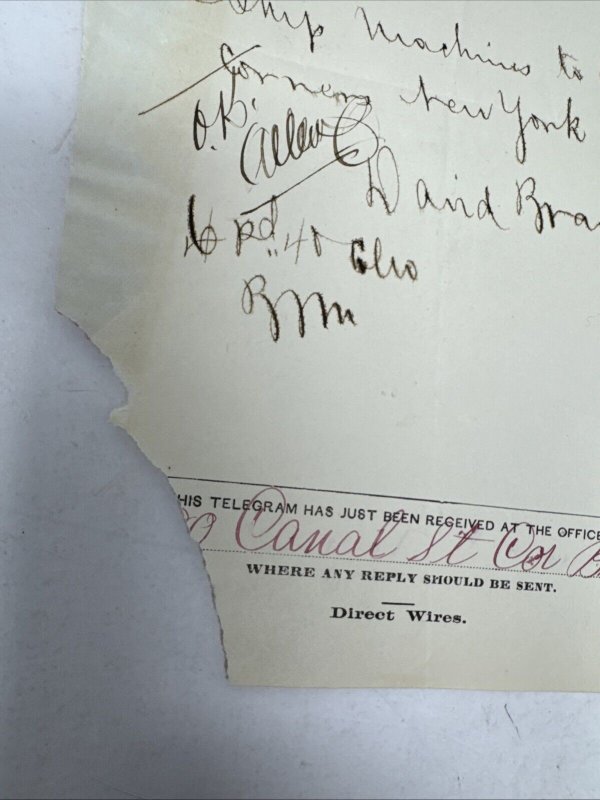 Ship Machines to
Corners New York
O.K.
David Bra
6 Pd 40
HIS TELEGRAM HAS JUST BEEN RECEIVED AT THE OFFICE
Canal St Cor B
WHERE ANY REPLY SHOULD BE SENT.
Direct Wires.